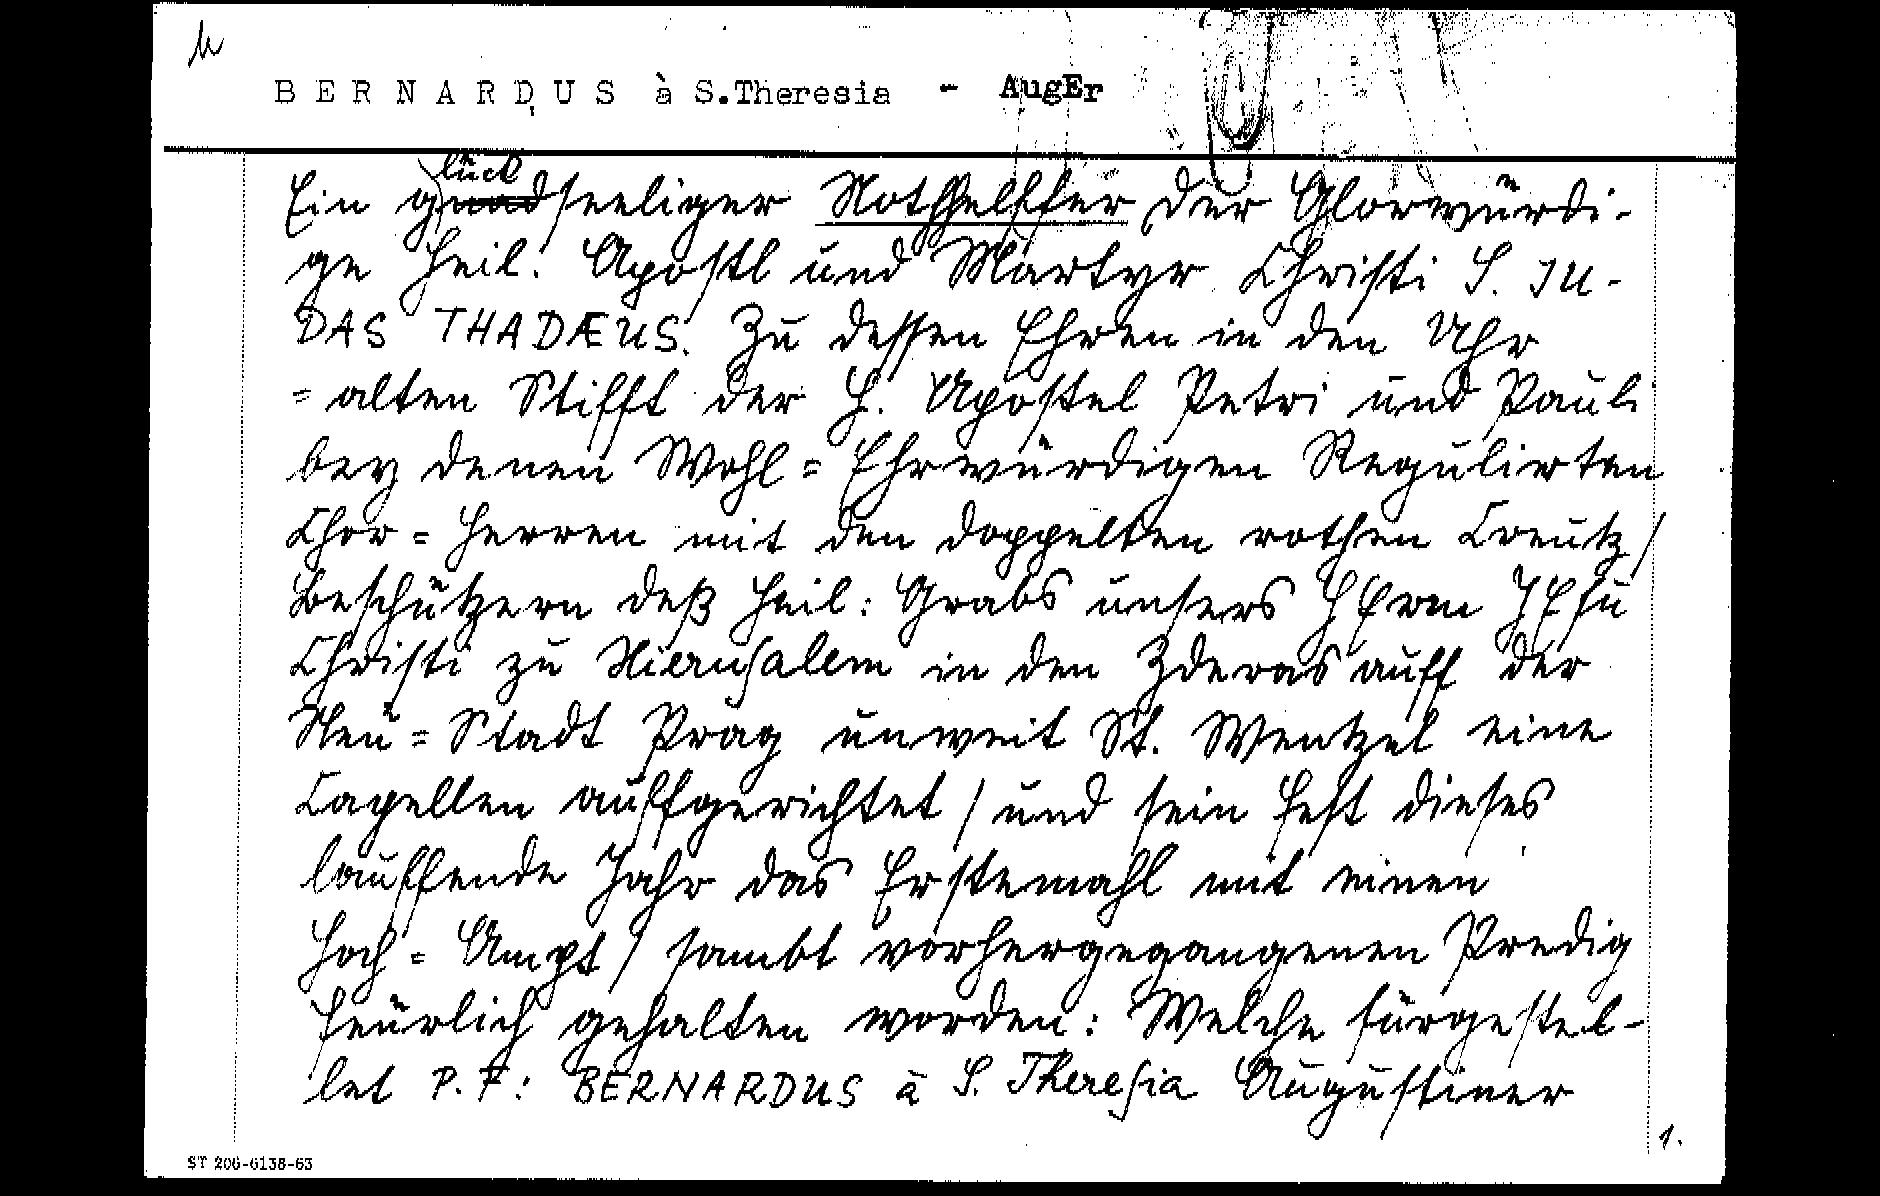 BERNARDUS à S.Theresia - AugEr
lück
Ein gnadseeliger Nothhelffer der Glorwürdi-
ge Heil. Apostl und Martyr Christi S. JU-
DAS THADÆUS. Zu dessen Ehren in den Uhr
= alten Stifft der H. Apostel Petri und Pauli
bey denen Wohl = Ehrwürdigen Regulierten
Chor = Herren mit den doppelten rothen Creutz/
Beschützern deß Heil: Grabs unsers HErrn JEsu
Christi zu Hierusalem in den Zderas auff der
Neu = Stadt Prag unweit St. Wentzel eine
Capellen auffgerichtet / und sein Fest dieses
lauffende Jahr das Erstemahl mit einen
Hoch = Ampt / sambt vorhergegangenen Predig
feürlich gehalten worden: Welche fürgestel-
let P. F: BERNARDUS à S. Theresia Augustiner
1.
ST 206-6138-63